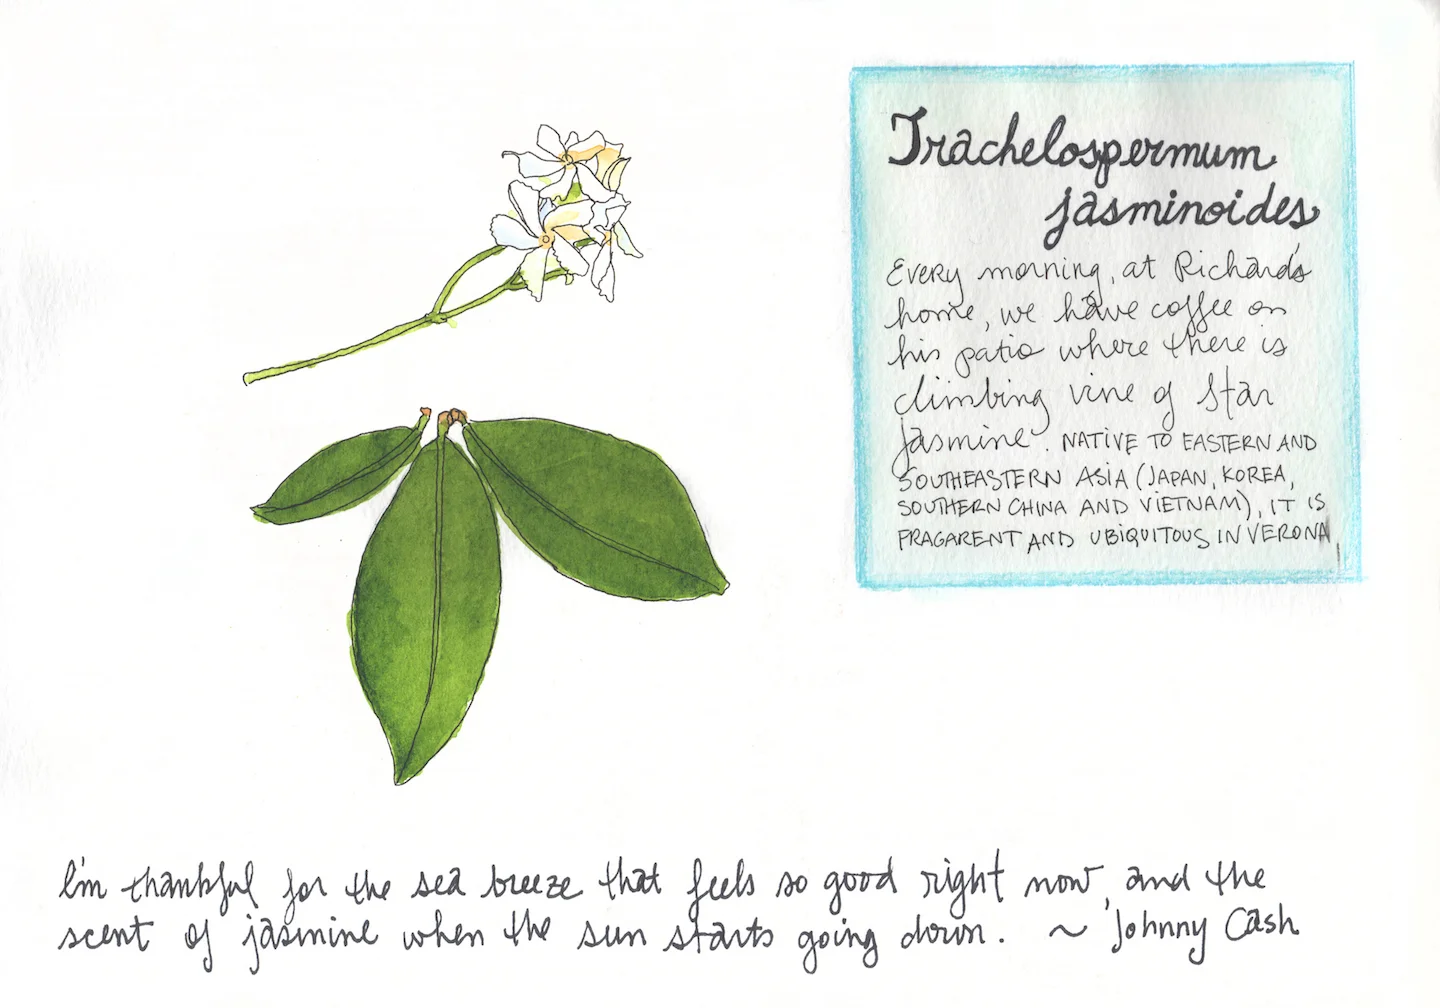 Trachelospermum
jasminoides
Every morning, at Richard's
home, we have coffee on
his patio where there is
climbing vine of star
jasmine. NATIVE TO EASTERN AND
SOUTHEASTERN ASIA (JAPAN, KOREA,
SOUTHERN CHINA AND VIETNAM), IT IS
FRAGARENT AND UBIQUITOUS IN VERONA
I'm thankful for the sea breeze that feels so good right now, and the
scent of jasmine when the sun starts going down. ~ Johnny Cash